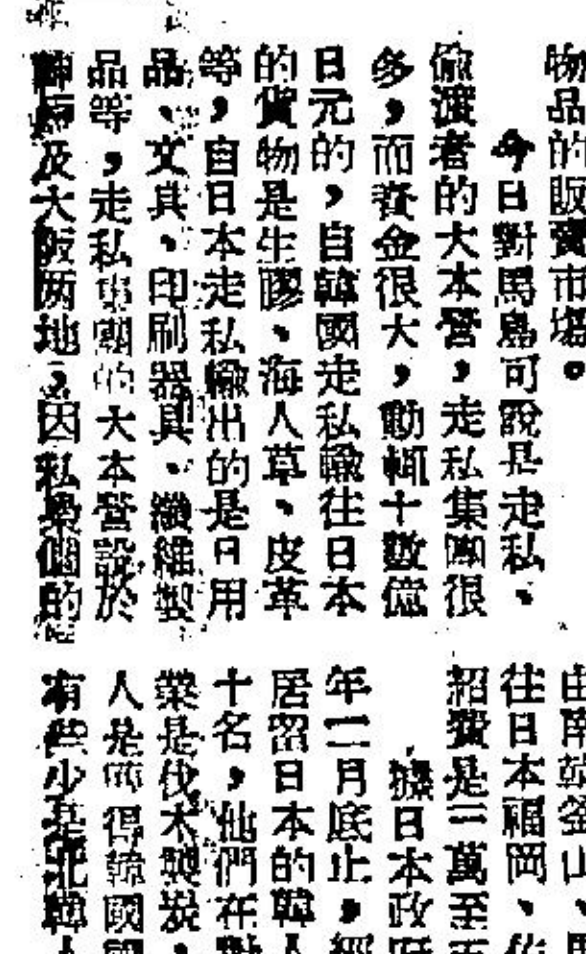 物品的販賣市場。
今日對馬島可說是走私、
偷渡者的大本營,走私集團很
多,而資金很大,動輒十數億
日元的,自韓國走私輸往日本
的貨物是生膠、海人草、皮革
等,自日本走私輸出的是日用
品、文具、印刷器具、纖維製
品等,走私集團的大本營設於
神戶及大阪兩地,因私梟們的
由南韓釜山、
往日本福岡、佐
紹費是三萬至五
據日本政府
年二月底止,經
居留日本的韓人
十名,他們在對
業是伐木製炭,
人是獲得韓國國
有些少是北韓人